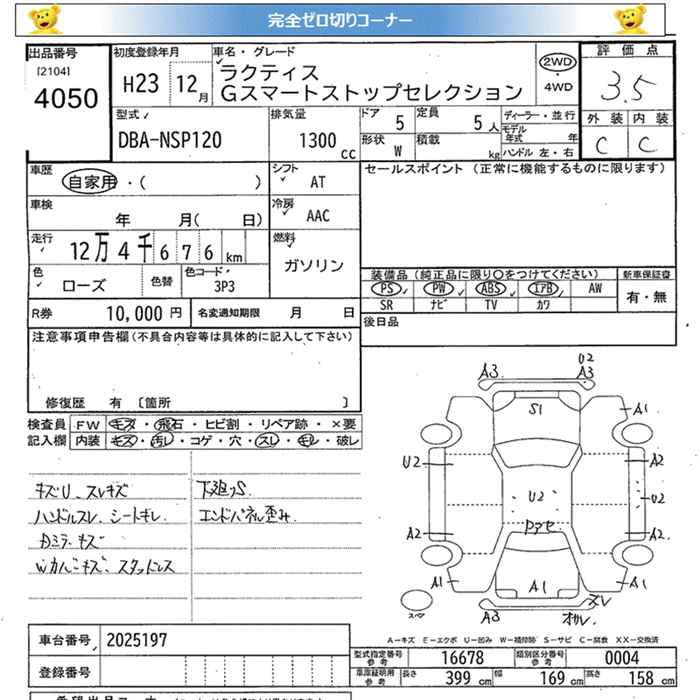 完全ゼロ切りコーナー
出品番号
[2104]
4050
初度登録年月
H23 12月
車名・グレード
ラクティス
Gスマートストップセレクション
2WD
4WD
評価点
3.5
外装 内装
C C
型式
DBA-NSP120
排気量
1300 cc
ドア 5
定員 5人
形状 W
積載 kg
ディーラー・並行
モデル年式 年
ハンドル 左・右
車歴
自家用・( )
シフト
AT
セールスポイント (正常に機能するものに限ります)
車検
年 月( 日)
冷房
AAC
走行
12万4千676km
燃料
ガソリン
色
ローズ
色替
色コード
3P3
装備品(純正品に限り○をつけてください)
新車保証書
PS PW ABS エアB AW
有・無
SR ナビ TV カワ
R券 10,000円
名変通知期限 月 日
後日品
注意事項申告欄(不具合内容等は具体的に記入して下さい)
修復歴 有 〔箇所 〕
検査員記入欄
FW キズ・飛石・ヒビ割・リペア跡・×要
内装 キズ・汚レ・コゲ・穴・スレ・キレ・破レ
キズU、スレキズ
ハンドルスレ、シートキレ
Dミラーキズ
スタッドレス
下廻りS
エンドパネル歪み
A3 U2 A3
S1
A1
U2 A2
U2 U2
A2 A2
A1 A1 A1
スペア
A3
A-キズ E-エクボ U-凹み W-補修跡 S-サビ C-腐食 XX-交換済
車台番号 2025197
型式指定番号 参考 16678
類別区分番号 参考 0004
登録番号
車庫証明用 参考 長さ 399 cm 幅 169 cm 高さ 158 cm